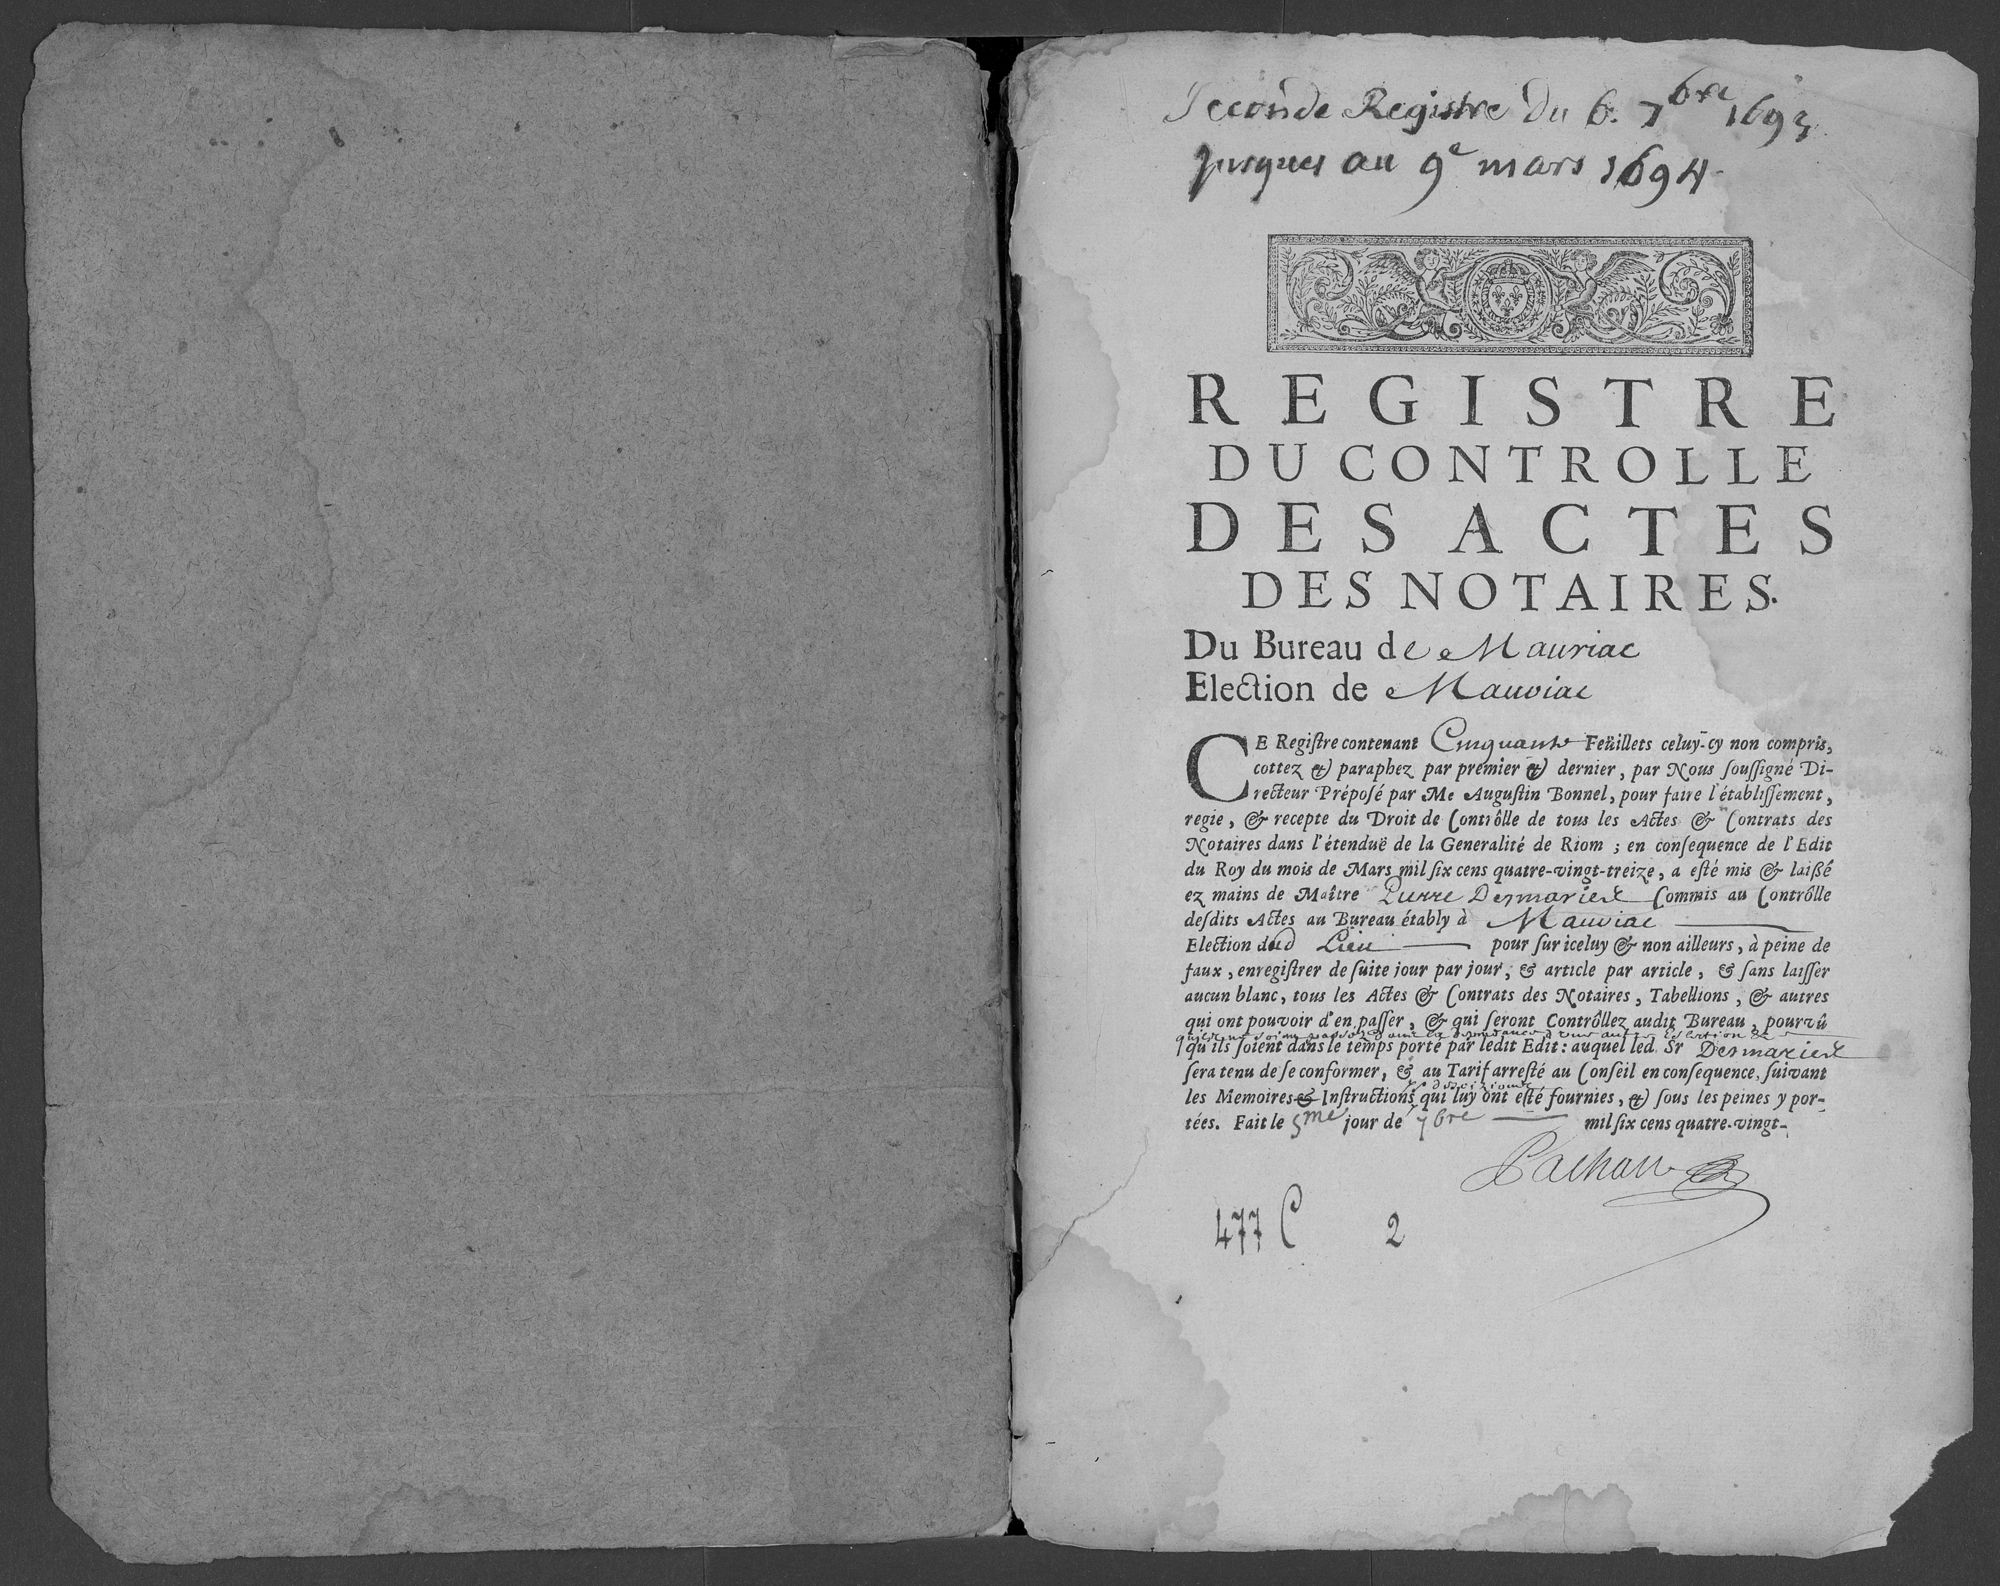 Seconde Registre Du 6. 7bre 1693
jusques au 9e mars 1694.
REGISTRE
DU CONTROLLE
DES ACTES
DES NOTAIRES.
Du Bureau de Mauriac
Election de Mauriac
CE Registre contenant Cinquante Feüillets celuy-cy non compris,
cottez & paraphez par premier & dernier, par Nous soussigné Di-
recteur Préposé par Me Augustin Bonnel, pour faire l'établissement,
regie, & recepte du Droit de Contrôlle de tous les Actes & Contrats des
Notaires dans l'étenduë de la Generalité de Riom ; en consequence de l'Edit
du Roy du mois de Mars mil six cens quatre-vingt-treize, a esté mis & laissé
ez mains de Maître Pierre Desmariest Commis au Contrôlle
desdits Actes au Bureau établi à Mauriac
Election dud Lieu pour sur iceluy & non ailleurs, à peine de
faux, enregistrer de suite jour par jour, & article par article, & sans laisser
aucun blanc, tous les Actes & Contrats des Notaires, Tabellions, & autres
qui ont pouvoir d'en passer, & qui seront Contrôllez audit Bureau, pourvû
qu'ils soient dans le temps porté par ledit Edit : auquel led. Sr Desmariest
sera tenu de se conformer, & au Tarif arresté au Conseil en consequence, suivant
les Memoires & Instructions qui luy ont esté fournies, & sous les peines y por-
tées. Fait le 5me jour de 7bre mil six cens quatre-vingt-
Pachau
477 C 2